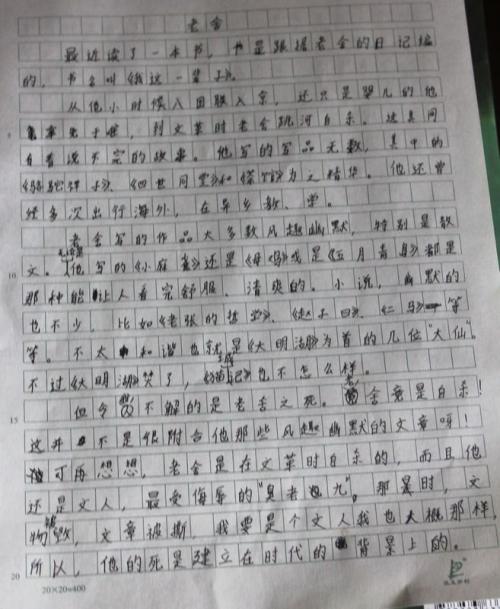 老舍
最近读了一本书，书是跟据老舍的日记编
的，书名叫《我这一辈子》。
从他小时候八国联入京，还只是婴儿的他
幸免于难，到文革时老舍跳河自杀。这其间
有着说不完的故事。他写的写品无数，其中的
《骆驼祥子》、《四世同堂》和《茶馆》为之精华。他还曾
经多次出行海外，在异乡教、学。
老舍写的作品大多数风趣幽默，特别是散
文。他写的《小麻雀》还是《母鸡》或是《五月青岛》都是
那种能让人看完舒服、清爽的。小说，幽默的
也不少，比如《老张的哲学》、《赵子曰》、《二马》等
等。不太和谐也就是《大明湖》为首的几位"大仙"。
不过《大明湖》焚了，《猫城记》也不怎么样。
但令我不解的是老舍之死。老舍竟是自杀！
这并不是很附合他那些风趣幽默的文章呀！
可再想想，老舍是在文革时自杀的，而且他
还是文人，最受侮辱的"臭老九"。那是时，文
物被毁，文章被撕，我要是个文人我也大概那样，
所以，他的死是建立在时代的背景上的。
5
10
15
20
20×20=400